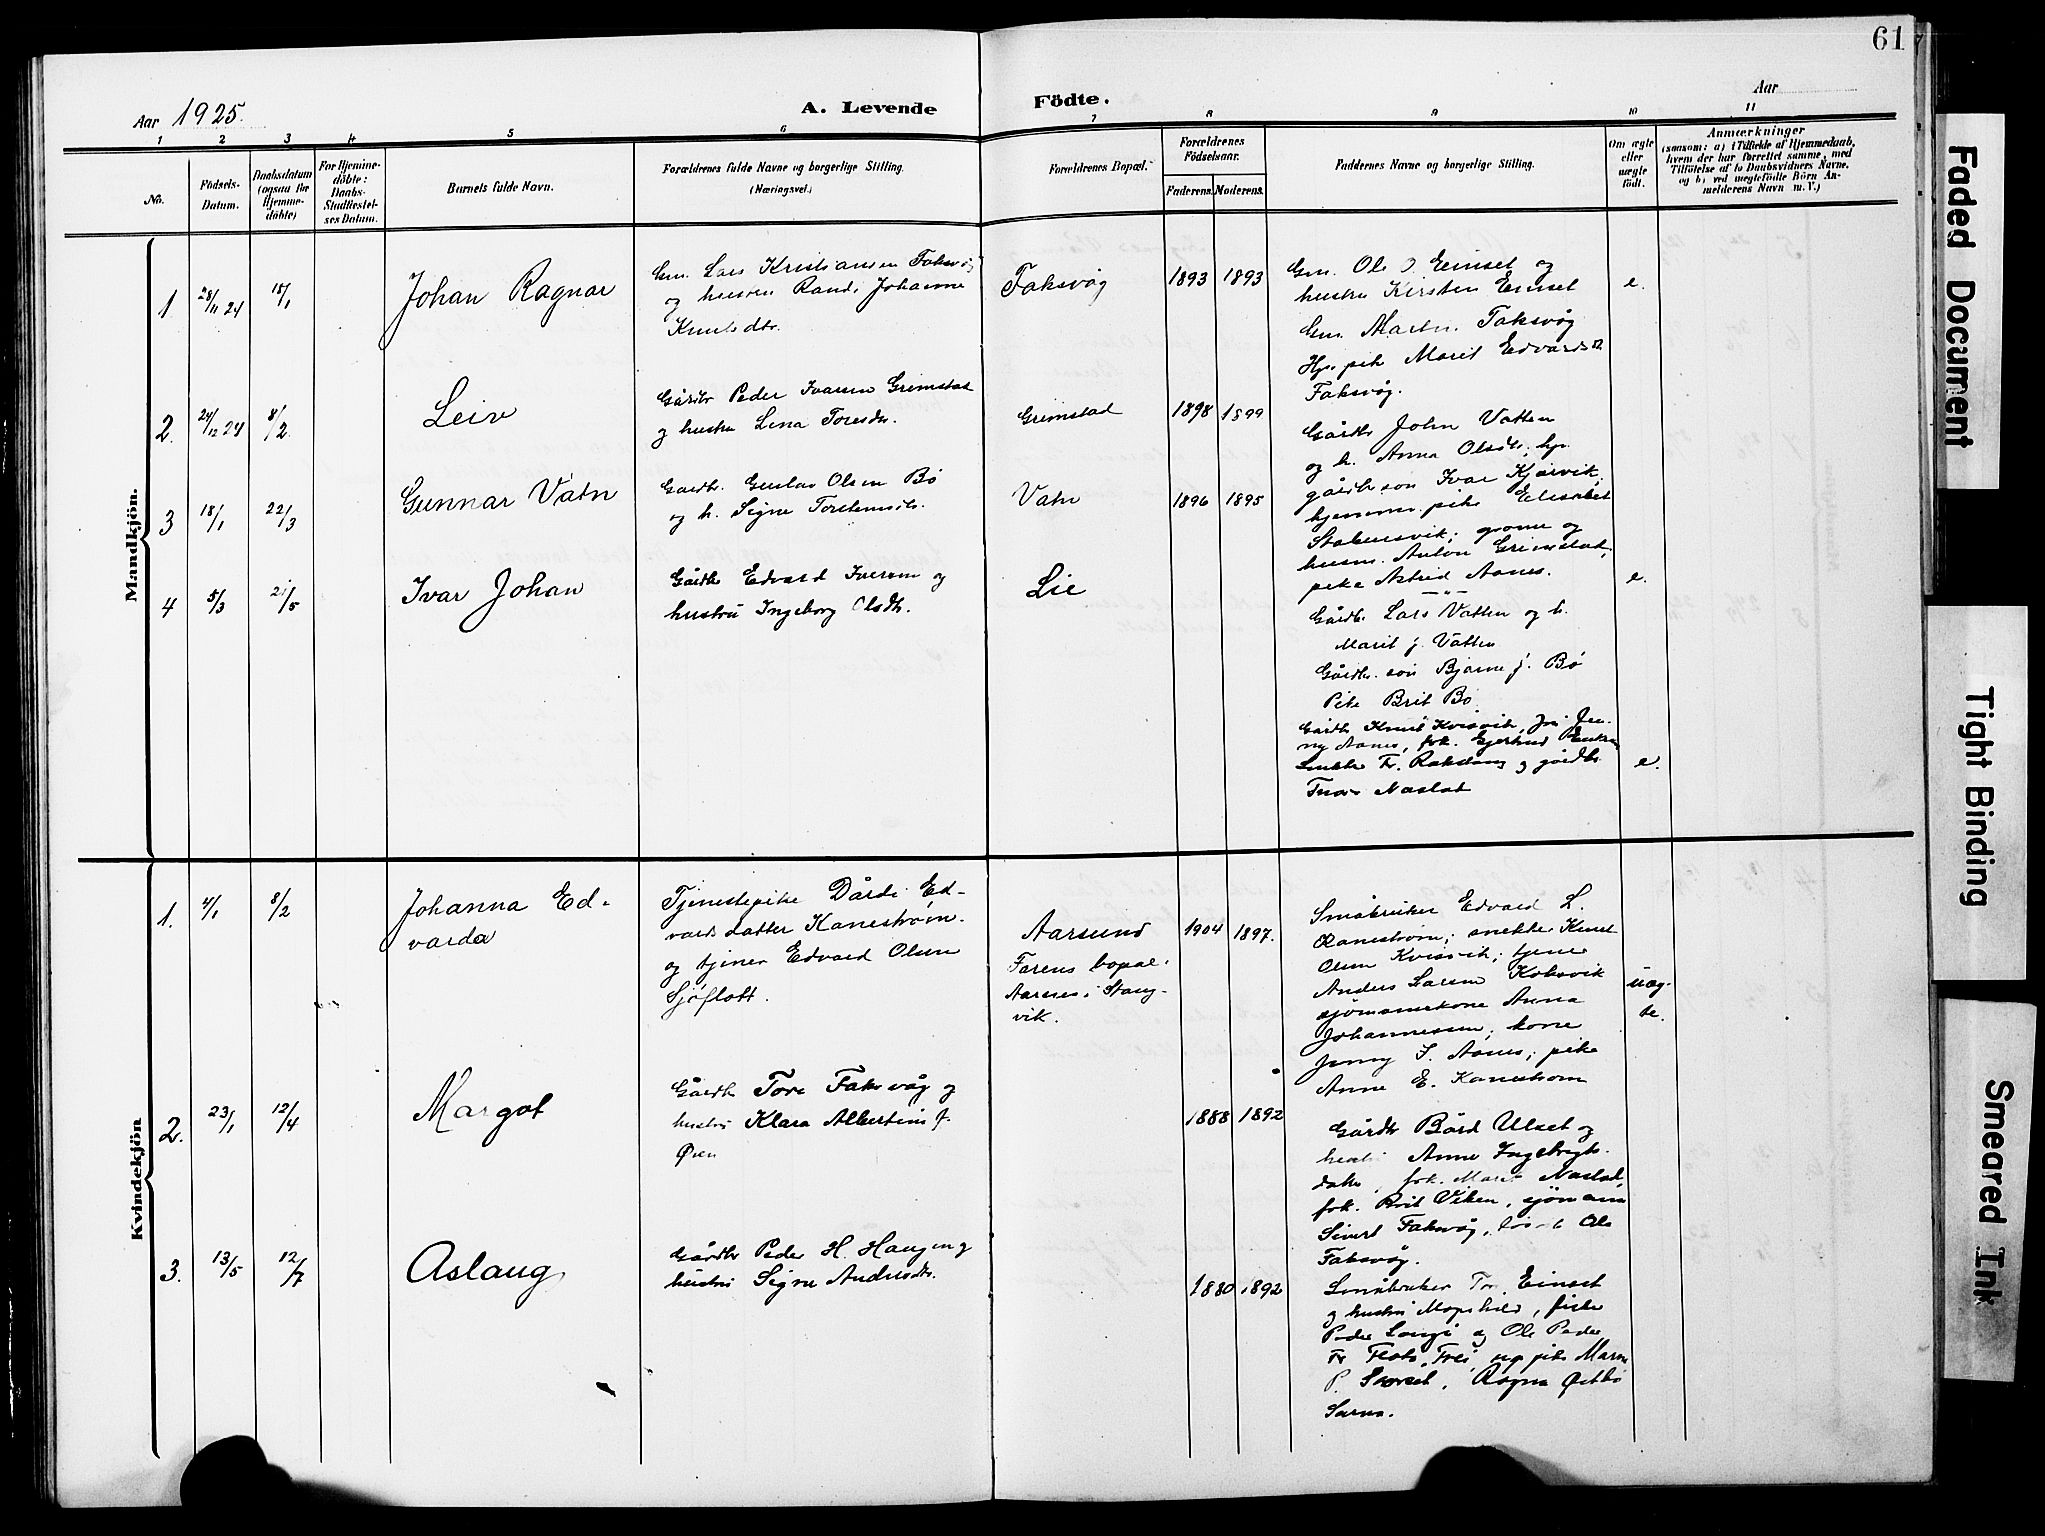 61
Aar 1925.
A. Levende Födte.
Aar
1 2 3 4 5 6 7 8 9 10 11
No.
Födsels-Datum.
Daabsdatum (ogsaa for Hjemme-döbte)
For Hjemme-döbte: Daabs-Stadfæstelses Datum.
Barnets fulde Navn.
Forældrenes fulde Navne og borgerlige Stilling. (Næringsvei.)
Forældrenes Bopæl.
Forældrenes Födselsaar.
Faderens. Moderens.
Faddernes Navne og borgerlige Stilling.
Om ægte eller uægte födt.
Anmærkninger
(saasom: a) i Tilfælde af Hjemmedaab,
hvem der har forrettet samme, med
Tilföielse af to Daabsvidners Navne.
og b) ved uægtefödte Börn An-
melderens Navn m. V.)
Mandkjön.
1 28/11 24 18/1 Johan Ragnar
Gm. Lars Kristiansen Faksvåg
og hustru Randi Johanne
Knutsdtr.
Faksvåg 1893 1893
Gm. Ole O. Einset og
hustru Kirsten Einset
Gm. Martin Faksvåg
Hj. pike Marit Edvardsdt.
Faksvåg.
e.
2. 24/12 24 8/2 Leiv
Gårdbr Peder Ivarsen Grimstad
og hustru Lina Toresdtr.
Grimstad 1898 1899
Gårdbr John Vatten
og h. Anna Olsdtr, hj.
gårdbr. son Ivar Kjørvik,
hjemmev. pike Elisabet
Stokensvik; grome og
husm. Anton Grimstad,
pike Astrid Aanes.
e.
3 18/1 22/3 Gunnar Vatn
Gardbr. Gustav Olsen Bö
og h. Signe Torstensdtr.
Vatn 1896 1895
Gårdbr. Lars Vatten og h.
Marit J. Vatten
Gårdbr. son Bjarne J. Bö
Pike Brit Bö
4 5/3 21/5 Ivar Johan
Gårdbr Edvard Iversen og
hustru Ingeborg Olsdtr.
Lie
Gårdbr Knut Kvisvik, frk. Jen-
ny Aanes, frk. Gjertrud
Snekker Tr. Røkshaug og gårdbr
Naslat
e.
Kvindekjön
1. 4/1 8/2 Johanna Ed-
varda
Tjenestepike Dårdi Ed-
vardsdatter Kanestrøm
og tjener Edvard Olsen
Sjøflott.
Aarsund
Farens bopæl:
Aarnes i Stang-
vik.
1904 1897.
Småbruker Edvard L.
Kanestrøm; snekker Knut
Olsen Kvisvik; tjener
Anders Larsen Koksvik
sjømannskone Anna
Johannessen; kone
Jenny I. Aanes; pike
Anne E. Kanestrøm
uæg-
te.
2. 23/1 12/4 Margot
Gårdbr Tore Faksvåg og
hustru Klara Albertine f.
Øien
1888 1892
Gårdbr Bård Ulset og
hustru Anne Ingebrigts-
datter, frk. Marit Naslad,
frk. Brit Viken, sjömann
Sivert Faksvåg, Ole
Faksvåg.
3. 13/5 12/7 Aslaug
Gårdbr Peder H. Haugen og
hustru Signe Andersdtr.
1880 1892
Småbruker Tr. Einset
og hustru Magnhild, fisker
Peder Longi og Ole Peder
Tr. Flotø, Frei, ug pike Marie
P. Storset, Ragna Østbö
Sarnes.
Faded Document
Tight Binding
Smeared Ink